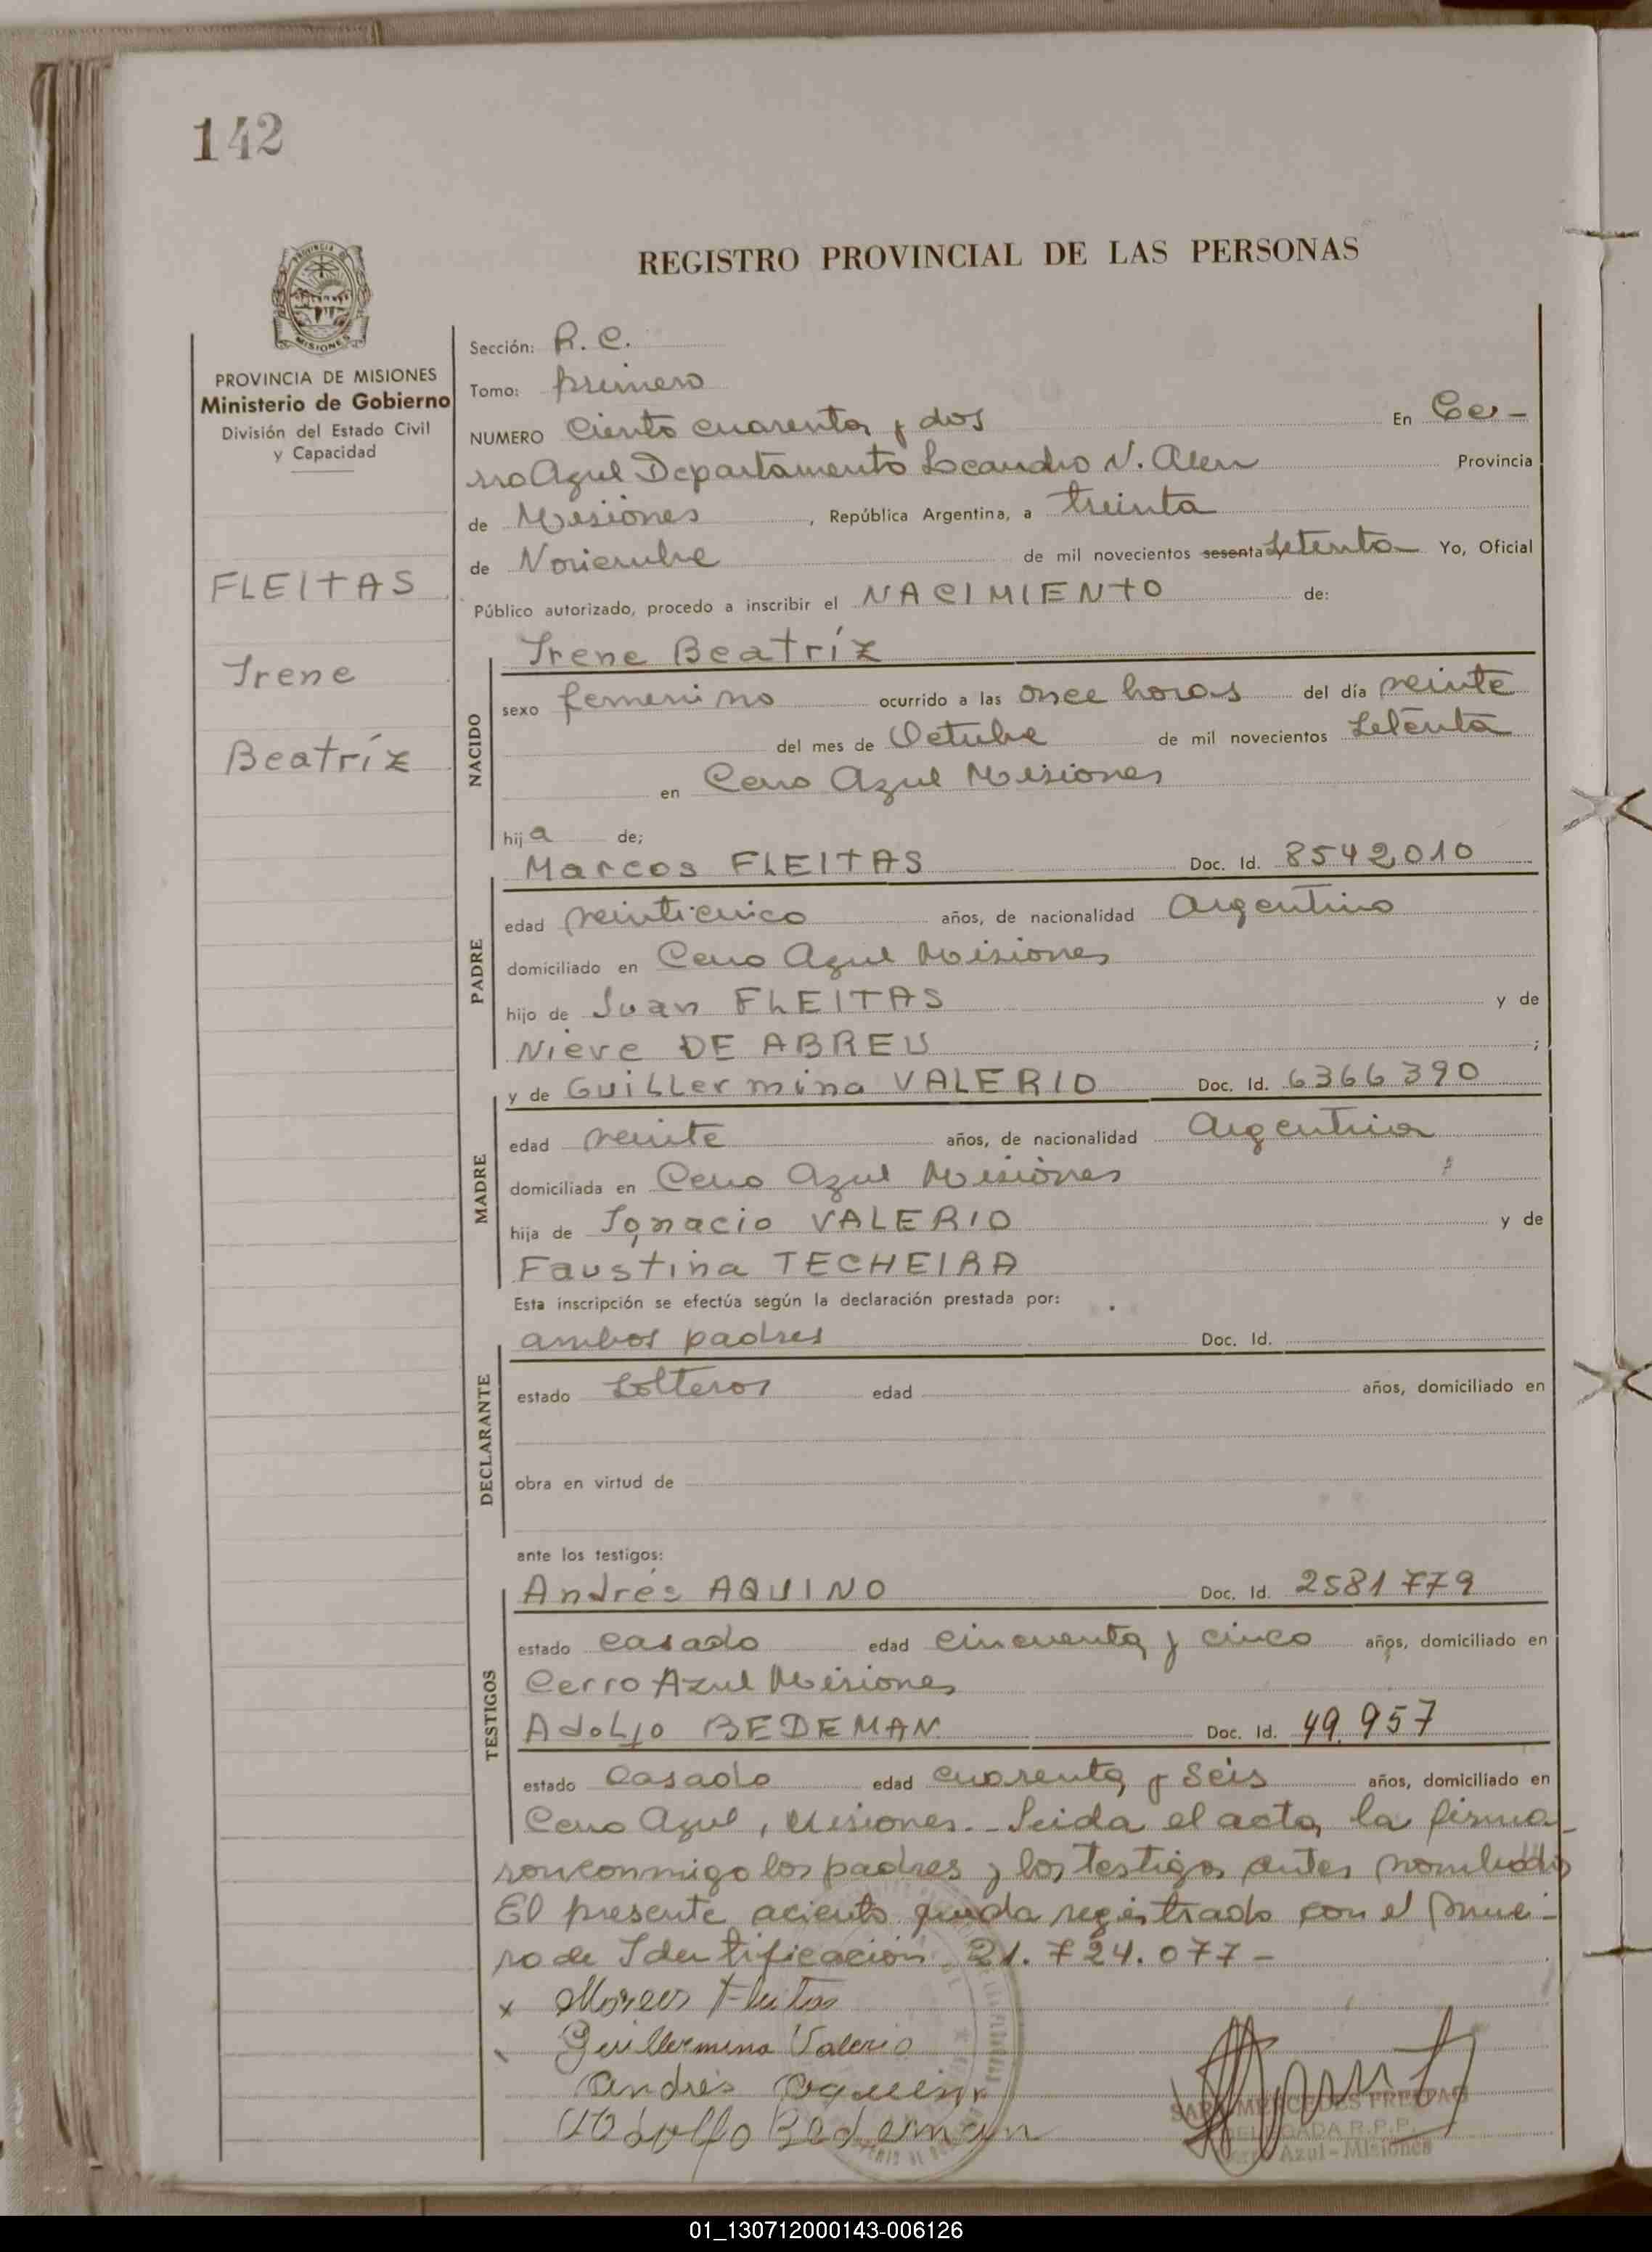 142
REGISTRO PROVINCIAL DE LAS PERSONAS
PROVINCIA
MISIONES
PROVINCIA DE MISIONES
Ministerio de Gobierno
División del Estado Civil
y Capacidad
FLEITAS
Irene
Beatríz
Sección: R. C.
Tomo: primero
NUMERO Ciento cuarenta y dos En Ce-
rro Azul Departamento Leandro N. Alem Provincia
de Misiones, República Argentina, a treinta
de Noviembre de mil novecientos sesenta Setenta Yo, Oficial
Público autorizado, procedo a inscribir el NACIMIENTO de:
NACIDO
Irene Beatríz
sexo femenino ocurrido a las once horas del día veinte
del mes de Octubre de mil novecientos Setenta
en Cerro Azul Misiones
hija de;
PADRE
Marcos FLEITAS Doc. Id. 8542010
edad veinticinco años, de nacionalidad Argentino
domiciliado en Cerro Azul Misiones
hijo de Juan FLEITAS y de
Nieve DE ABREU ;
MADRE
y de Guillermina VALERIO Doc. Id. 6366390
edad veinte años, de nacionalidad Argentina
domiciliada en Cerro Azul Misiones
hija de Ignacio VALERIO y de
Faustina TECHEIRA
Esta inscripción se efectúa según la declaración prestada por:
DECLARANTE
ambos padres Doc. Id.
estado Solteros edad años, domiciliado en
obra en virtud de
ante los testigos:
TESTIGOS
Andrés AQUINO Doc. Id. 2581779
estado casado edad cincuenta y cinco años, domiciliado en
Cerro Azul Misiones
Adolfo BEDEMAN Doc. Id. 49.957
estado Casado edad cuarenta y seis años, domiciliado en
Cerro Azul, Misiones.- Leida el acta, la firma-
ron conmigo los padres y los testigos antes nombrados
El presente aciento queda registrado con el nume-
ro de Identificación 21.724.077-
x Marcos Fleitas
Guillermina Valerio
Andrés Aquino
Adolfo Bedeman
SARA MERCEDES FREITAG
DELEGADA R.P.P.
Cerro Azul - Misiones
01_130712000143-006126